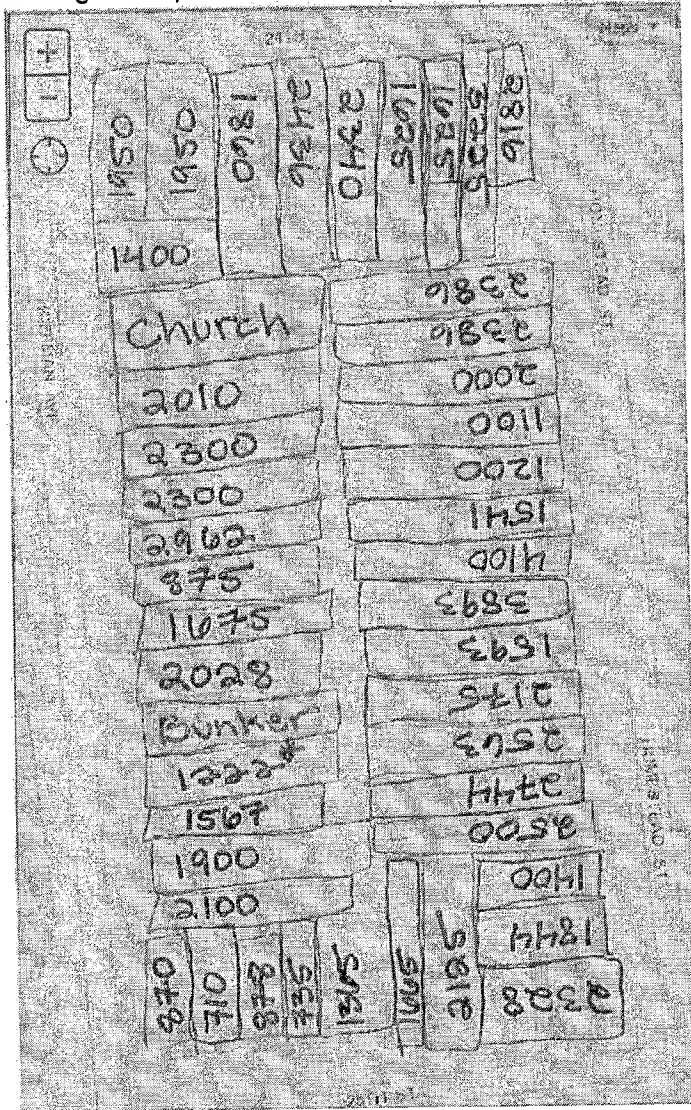 1950
1950
1860
2436
2340
1625
1625
2816
1400
Church
2010
2300
2300
2962
875
1675
2028
Bunker
1222*
1567
1900
2100
2386
2386
2000
1100
1200
1541
4100
3893
1593
2175
2563
2744
2500
1400
1844
2328
870
710
878
735
1365
1665
2185